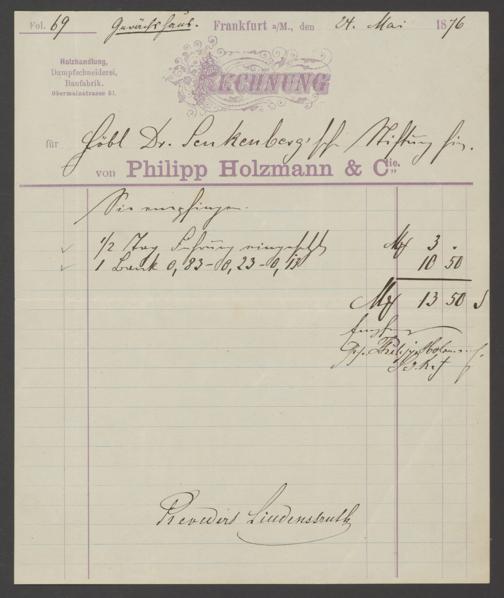 Fol. 69 Gewächshaus. Frankfurt a/M., den 24. Mai 1876
Holzhandlung,
Dampfschneiderei,
Baufabrik.
Obermainstrasse 51.
RECHNUNG
für Löbl Dr. Senkenberg'sche Stiftung hier.
von Philipp Holzmann & Cie.
Sie empfingen
1/2 Tag eingesetzt Mk 3 .
1 Bank 0,83 - 0,23 - 0,13 10 50
Mk 13 50
Philipp Holzmann
Revidirt Lindensruth